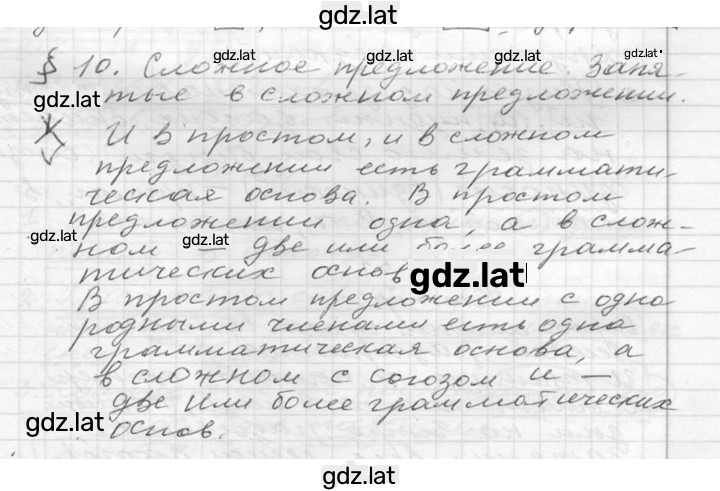 gdz.lat
gdz.lat
gdz.lat
§ 10. Сложное предложение. Запя-
gdz.lat
тые в сложном предложении.
И в простом, и в сложном
предложении есть граммати-
ческая основа. В простом
предложении одна, а в слож-
gdz.lat
gdz.lat
ном — две или более грамма-
тических основ
gdz.lat
В простом предложении с одно
родными членами есть одна
грамматическая основа, а
в сложном с союзом и —
две или более грамматических
gdz.lat
основ.
gdz.lat
gdz.lat